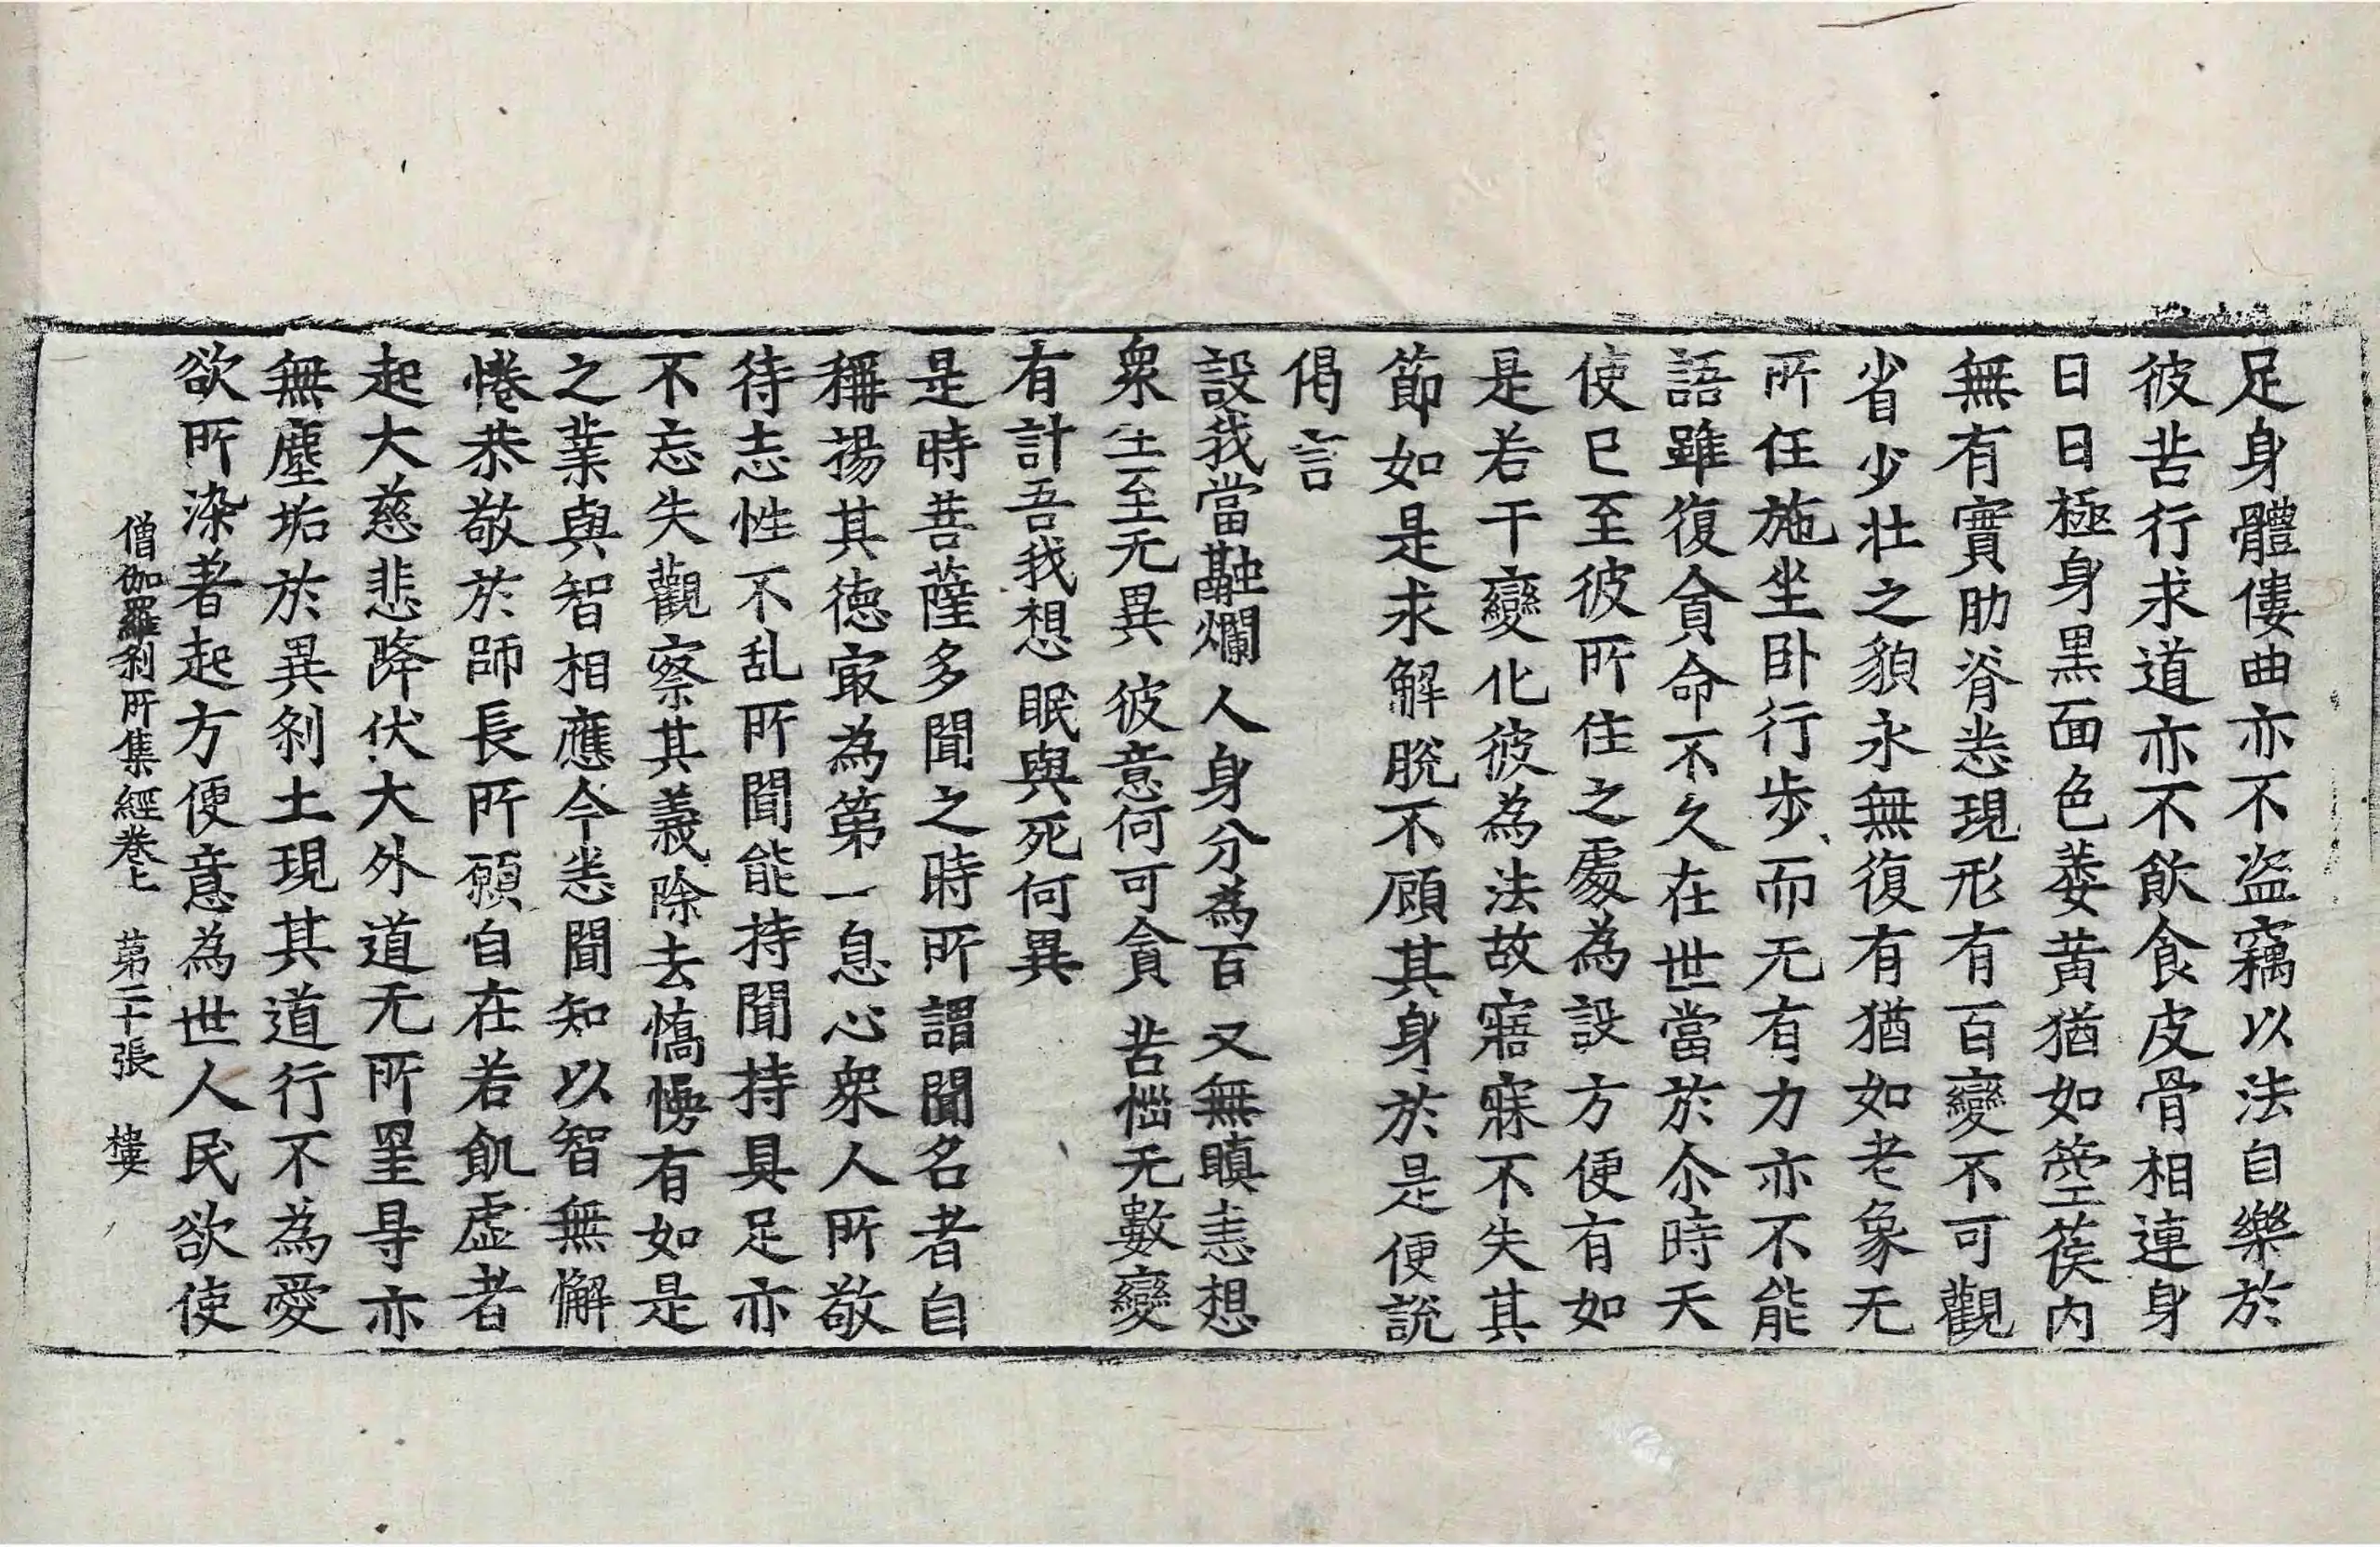 足身體僂曲亦不盜竊以法自樂於
彼苦行求道亦不飲食皮骨相連身
日日極身黑面色萎黃猶如箜篌内
無有實肋脊悉現形有百變不可觀
省少壯之貌永無復有猶如老象无
所任施坐卧行步而无有力亦不能
語雖復貪命不久在世當於尒時天
使已至彼所住之處為設方便有如
是若干變化彼為法故寤寐不失其
節如是求解脫不顧其身於是便說
偈言
設我當融爛 人身分為百 又無瞋恚想
衆生至无異 彼意何可貪 苦惱无數變
有計吾我想 眠與死何異
是時菩薩多聞之時所謂聞名者自
稱揚其德㝡為第一息心衆人所敬
待志性不乱所聞能持聞持具足亦
不忘失觀察其義除去憍慢有如是
之業與智相應今悉聞知以智無懈
惓恭敬於師長所願自在若飢虛者
起大慈悲降伏大外道无所罣㝵亦
無塵垢於異剎土現其道行不為愛
欲所染著起方便意為世人民欲使
僧伽羅剎所集經卷上 第二十張 樓